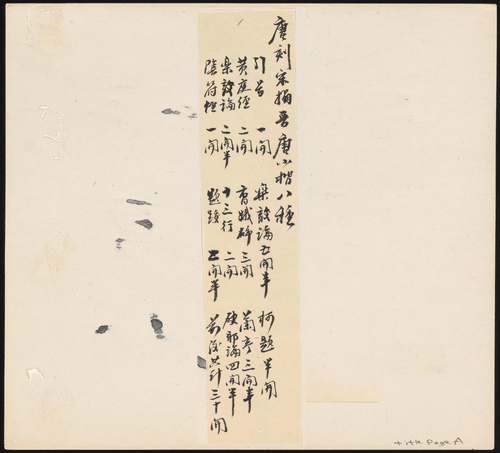 唐刻宋搨晋唐小楷八種
引首 一開 樂毅論 五開半 柯題 半開
黃庭經 二開 曹娥碑 三開 蘭亭 三開半
樂毅論 二開半 十三行 二開 破邪論 四開半
陰符經 一開 題跋 開半 前後共計三十開
title page A